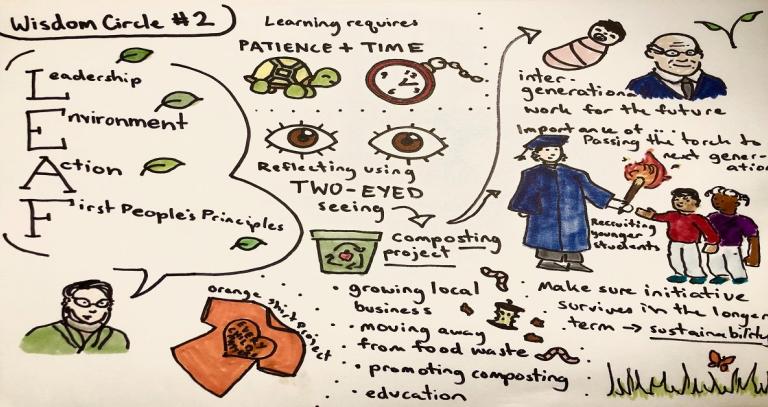 Wisdom Circle #2
Leadership
Environment
Action
First People's Principles
Learning requires
PATIENCE + TIME
Reflecting using
TWO-EYED
seeing
composting
project
orange shirt project
EVERY
CHILD
MATTERS
• growing local
business
• moving away
from food waste
• promoting composting
• education
inter-
generational
work for the future
Importance of...
Passing the torch to
next gener-
ation
Recruiting
younger
students
Make sure initiative
survives in the longer
term → sustainability